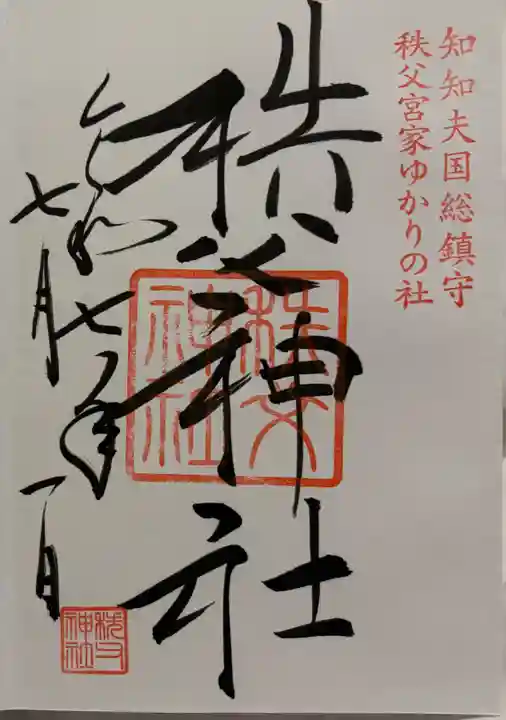 知知夫国総鎮守
秩父宮家ゆかりの社
秩父神社
秩父
神社
令和七年
七月一日
秩父
神社